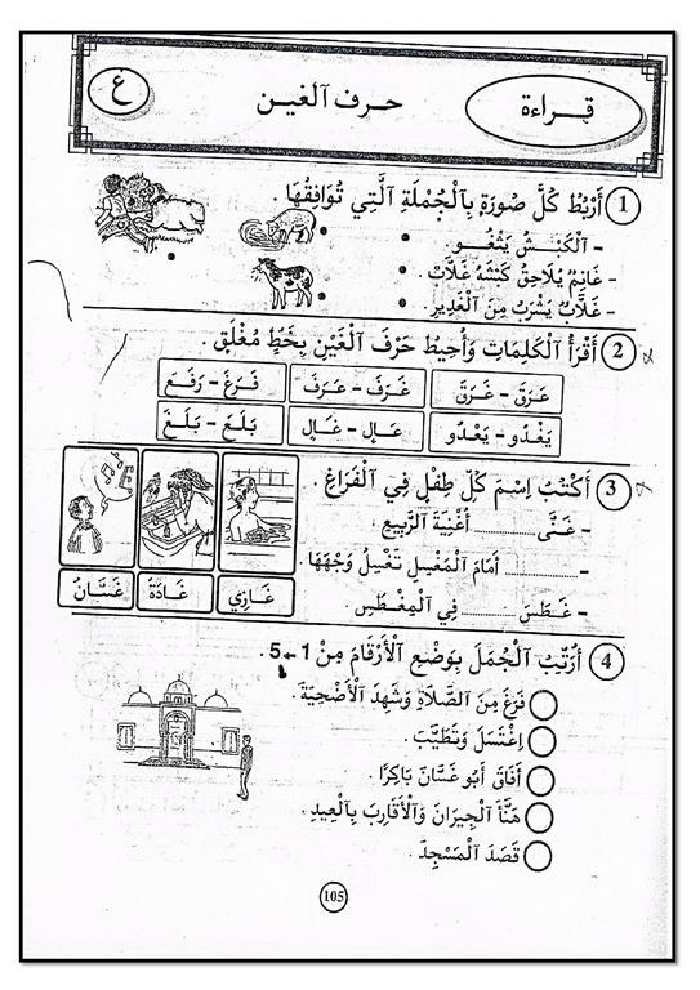 قـراءة
حرف ٱلغين
غ
1 أَرْبُطُ كُلَّ صُورَةٍ بِٱلْجُمْلَةِ ٱلَّتِي تُوَافِقُهَا .
- ٱلْكَبْشُ يَثْغُو .
- غَانِمٌ يُلَاحِقُ كَبْشَهُ غَلَّابَ .
- غَلَّابٌ يَشْرَبُ مِنَ ٱلْغَدِيرِ .
2 أَقْرَأُ ٱلْكَلِمَاتِ وَأُحِيطُ حَرْفَ ٱلْغَيْنِ بِخَطٍّ مُغْلَقٍ .
عَرَقَ - غَرَقَ
غَرَفَ - عَرَفَ
فَرَغَ - رَفَعَ
يَغْدُو - يَعْدُو
عَـالٍ - غَـالٍ
بَلَعَ - بَلَغَ
3 أَكْتُبُ اِسْمَ كُلِّ طِفْلٍ فِي ٱلْفَرَاغِ .
- غَنَّى ............ أُغْنِيَةَ ٱلرَّبِيعِ .
- ............ أَمَامَ ٱلْمَغْسِلِ تَغْسِلُ وَجْهَهَا .
- غَطَسَ ............ فِي ٱلْمِغْطَسِ .
غَازِي
غَادَةُ
غَسَّانُ
4 أُرَتِّبُ ٱلْجُمَلَ بِوَضْعِ ٱلْأَرْقَامَ مِنْ 1 ← 5 .
فَرَغَ مِنَ ٱلصَّلَاةِ وَشَهِدَ ٱلْأُضْحِيَةَ .
اِغْتَسَلَ وَتَطَيَّبَ .
أَفَاقَ أَبُو غَسَّانَ بَاكِرًا .
هَنَّأَ ٱلْجِيرَانَ وَٱلْأَقَارِبَ بِٱلْعِيدِ .
قَصَدَ ٱلْمَسْجِدَ .
105